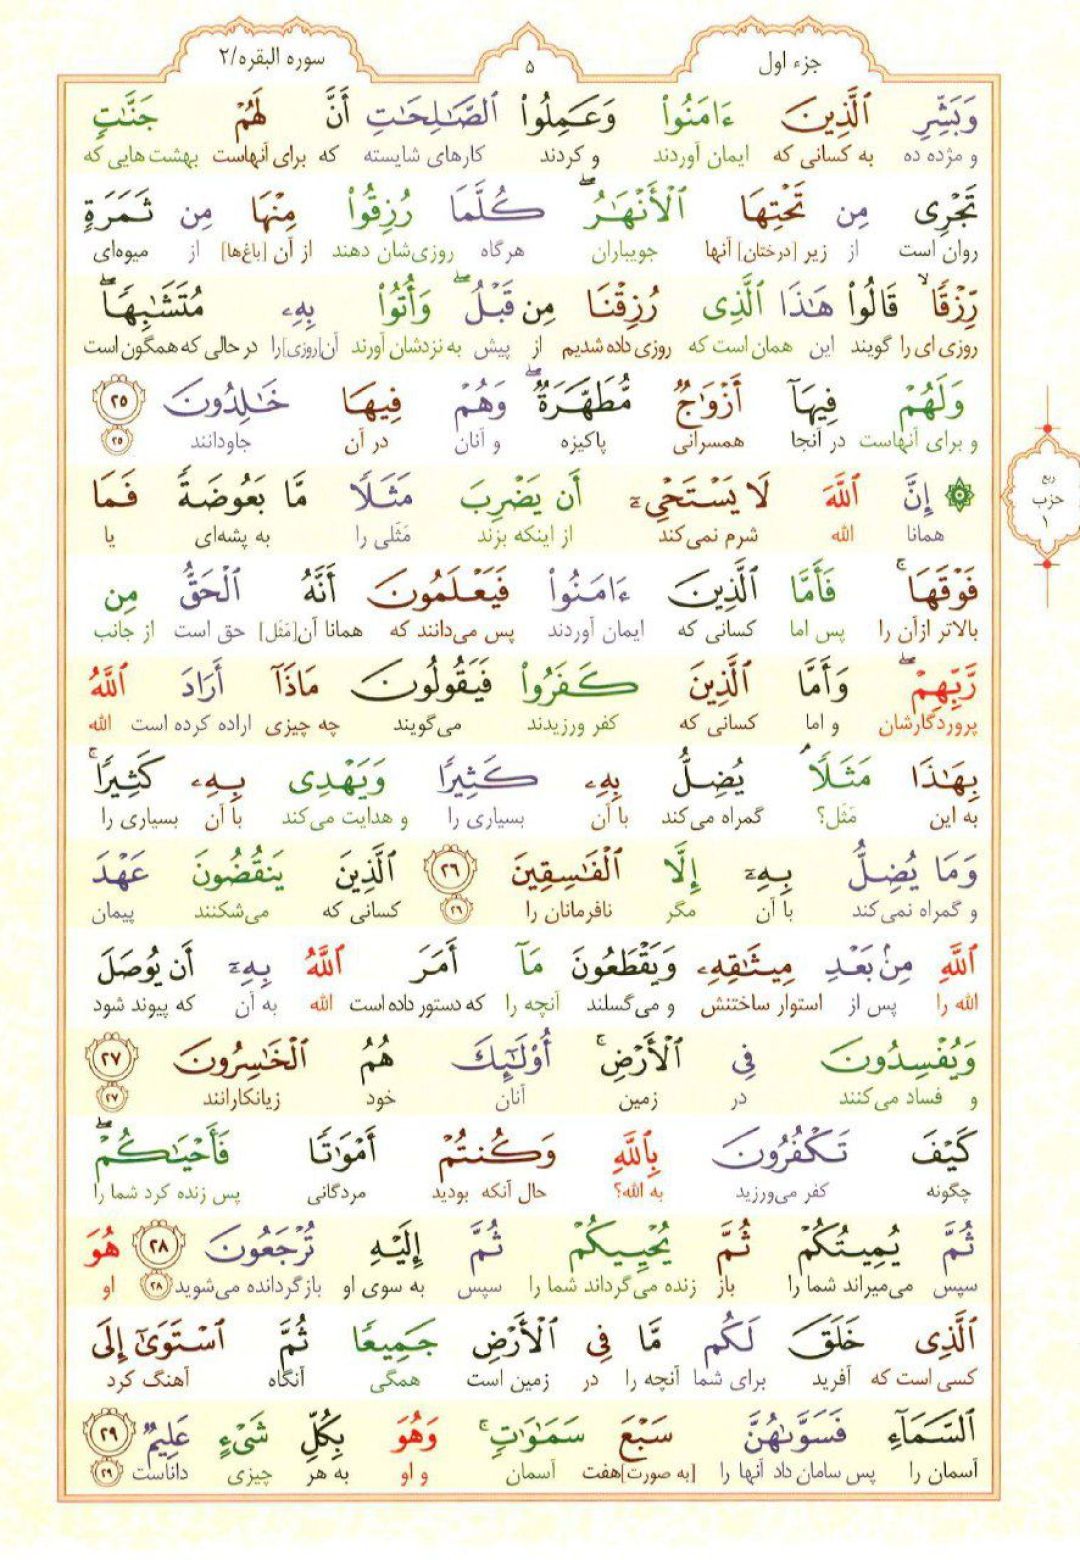 سوره البقره/۲
۵
جزء اول
وَبَشِّرِ ٱلَّذِينَ ءَامَنُوا۟ وَعَمِلُوا۟ ٱلصَّـٰلِحَـٰتِ أَنَّ لَهُمْ جَنَّـٰتٍ
و مژده ده به کسانی که ایمان آوردند و کردند کارهای شایسته که برای آنهاست بهشت هایی که
تَجْرِى مِن تَحْتِهَا ٱلْأَنْهَـٰرُ ۖ كُلَّمَا رُزِقُوا۟ مِنْهَا مِن ثَمَرَةٍ
روان است از زیر [درختان] آنها جویباران هرگاه روزی‌شان دهند از آن [باغ‌ها] از میوه‌ای
رِّزْقًا ۙ قَالُوا۟ هَـٰذَا ٱلَّذِى رُزِقْنَا مِن قَبْلُ ۖ وَأُتُوا۟ بِهِۦ مُتَشَـٰبِهًا ۖ
روزی ای را گویند این همان است که روزی داده شدیم از پیش به نزدشان آورند آن[روزی]را در حالی که همگون است
وَلَهُمْ فِيهَآ أَزْوَٰجٌ مُّطَهَّرَةٌ ۖ وَهُمْ فِيهَا خَـٰلِدُونَ ۲۵
و برای آنهاست در آنجا همسرانی پاکیزه و آنان در آن جاودانند ۲۵
۞ إِنَّ ٱللَّهَ لَا يَسْتَحْىِۦٓ أَن يَضْرِبَ مَثَلًا مَّا بَعُوضَةً فَمَا
همانا الله شرم نمی‌کند از اینکه بزند مَثَلی را به پشه‌ای یا
ربع
حزب
۱
فَوْقَهَا ۚ فَأَمَّا ٱلَّذِينَ ءَامَنُوا۟ فَيَعْلَمُونَ أَنَّهُ ٱلْحَقُّ مِن
بالاتر ازآن را پس اما کسانی که ایمان آوردند پس می‌دانند که همانا آن[مَثَل] حق است از جانب
رَّبِّهِمْ ۖ وَأَمَّا ٱلَّذِينَ كَفَرُوا۟ فَيَقُولُونَ مَاذَآ أَرَادَ ٱللَّهُ
پروردگارشان و اما کسانی که کفر ورزیدند می‌گویند چه چیزی اراده کرده است الله
بِهَـٰذَا مَثَلًا ۘ يُضِلُّ بِهِۦ كَثِيرًا وَيَهْدِى بِهِۦ كَثِيرًا ۚ
به این مَثَل؟ گمراه می‌کند با آن بسیاری را و هدایت می‌کند با آن بسیاری را
وَمَا يُضِلُّ بِهِۦٓ إِلَّا ٱلْفَـٰسِقِينَ ۲۶ ٱلَّذِينَ يَنقُضُونَ عَهْدَ
و گمراه نمی‌کند با آن مگر نافرمانان را ۲۶ کسانی که می‌شکنند پیمان
ٱللَّهِ مِنۢ بَعْدِ مِيثَـٰقِهِۦ وَيَقْطَعُونَ مَآ أَمَرَ ٱللَّهُ بِهِۦٓ أَن يُوصَلَ
الله را پس از استوار ساختنش و می‌گسلند آنچه را که دستور داده است الله به آن که پیوند شود
وَيُفْسِدُونَ فِى ٱلْأَرْضِ ۚ أُو۟لَـٰٓئِكَ هُمُ ٱلْخَـٰسِرُونَ ۲۷
و فساد می‌کنند در زمین آنان خود زیانکارانند ۲۷
كَيْفَ تَكْفُرُونَ بِٱللَّهِ وَكُنتُمْ أَمْوَٰتًا فَأَحْيَـٰكُمْ ۖ
چگونه کفر می‌ورزید به الله؟ حال آنکه بودید مردگانی پس زنده کرد شما را
ثُمَّ يُمِيتُكُمْ ثُمَّ يُحْيِيكُمْ ثُمَّ إِلَيْهِ تُرْجَعُونَ ۲۸ هُوَ
سپس می‌میراند شما را باز زنده می‌گرداند شما را سپس به سوی او بازگردانده می‌شوید ۲۸ او
ٱلَّذِى خَلَقَ لَكُم مَّا فِى ٱلْأَرْضِ جَمِيعًا ثُمَّ ٱسْتَوَىٰٓ إِلَى
کسی است که آفرید برای شما آنچه را در زمین است همگی آنگاه آهنگ کرد
ٱلسَّمَآءِ فَسَوَّىٰهُنَّ سَبْعَ سَمَـٰوَٰتٍ ۚ وَهُوَ بِكُلِّ شَىْءٍ عَلِيمٌ ۲۹
آسمان را پس سامان داد آنها را [به صورت]هفت آسمان و او به هر چیزی داناست ۲۹